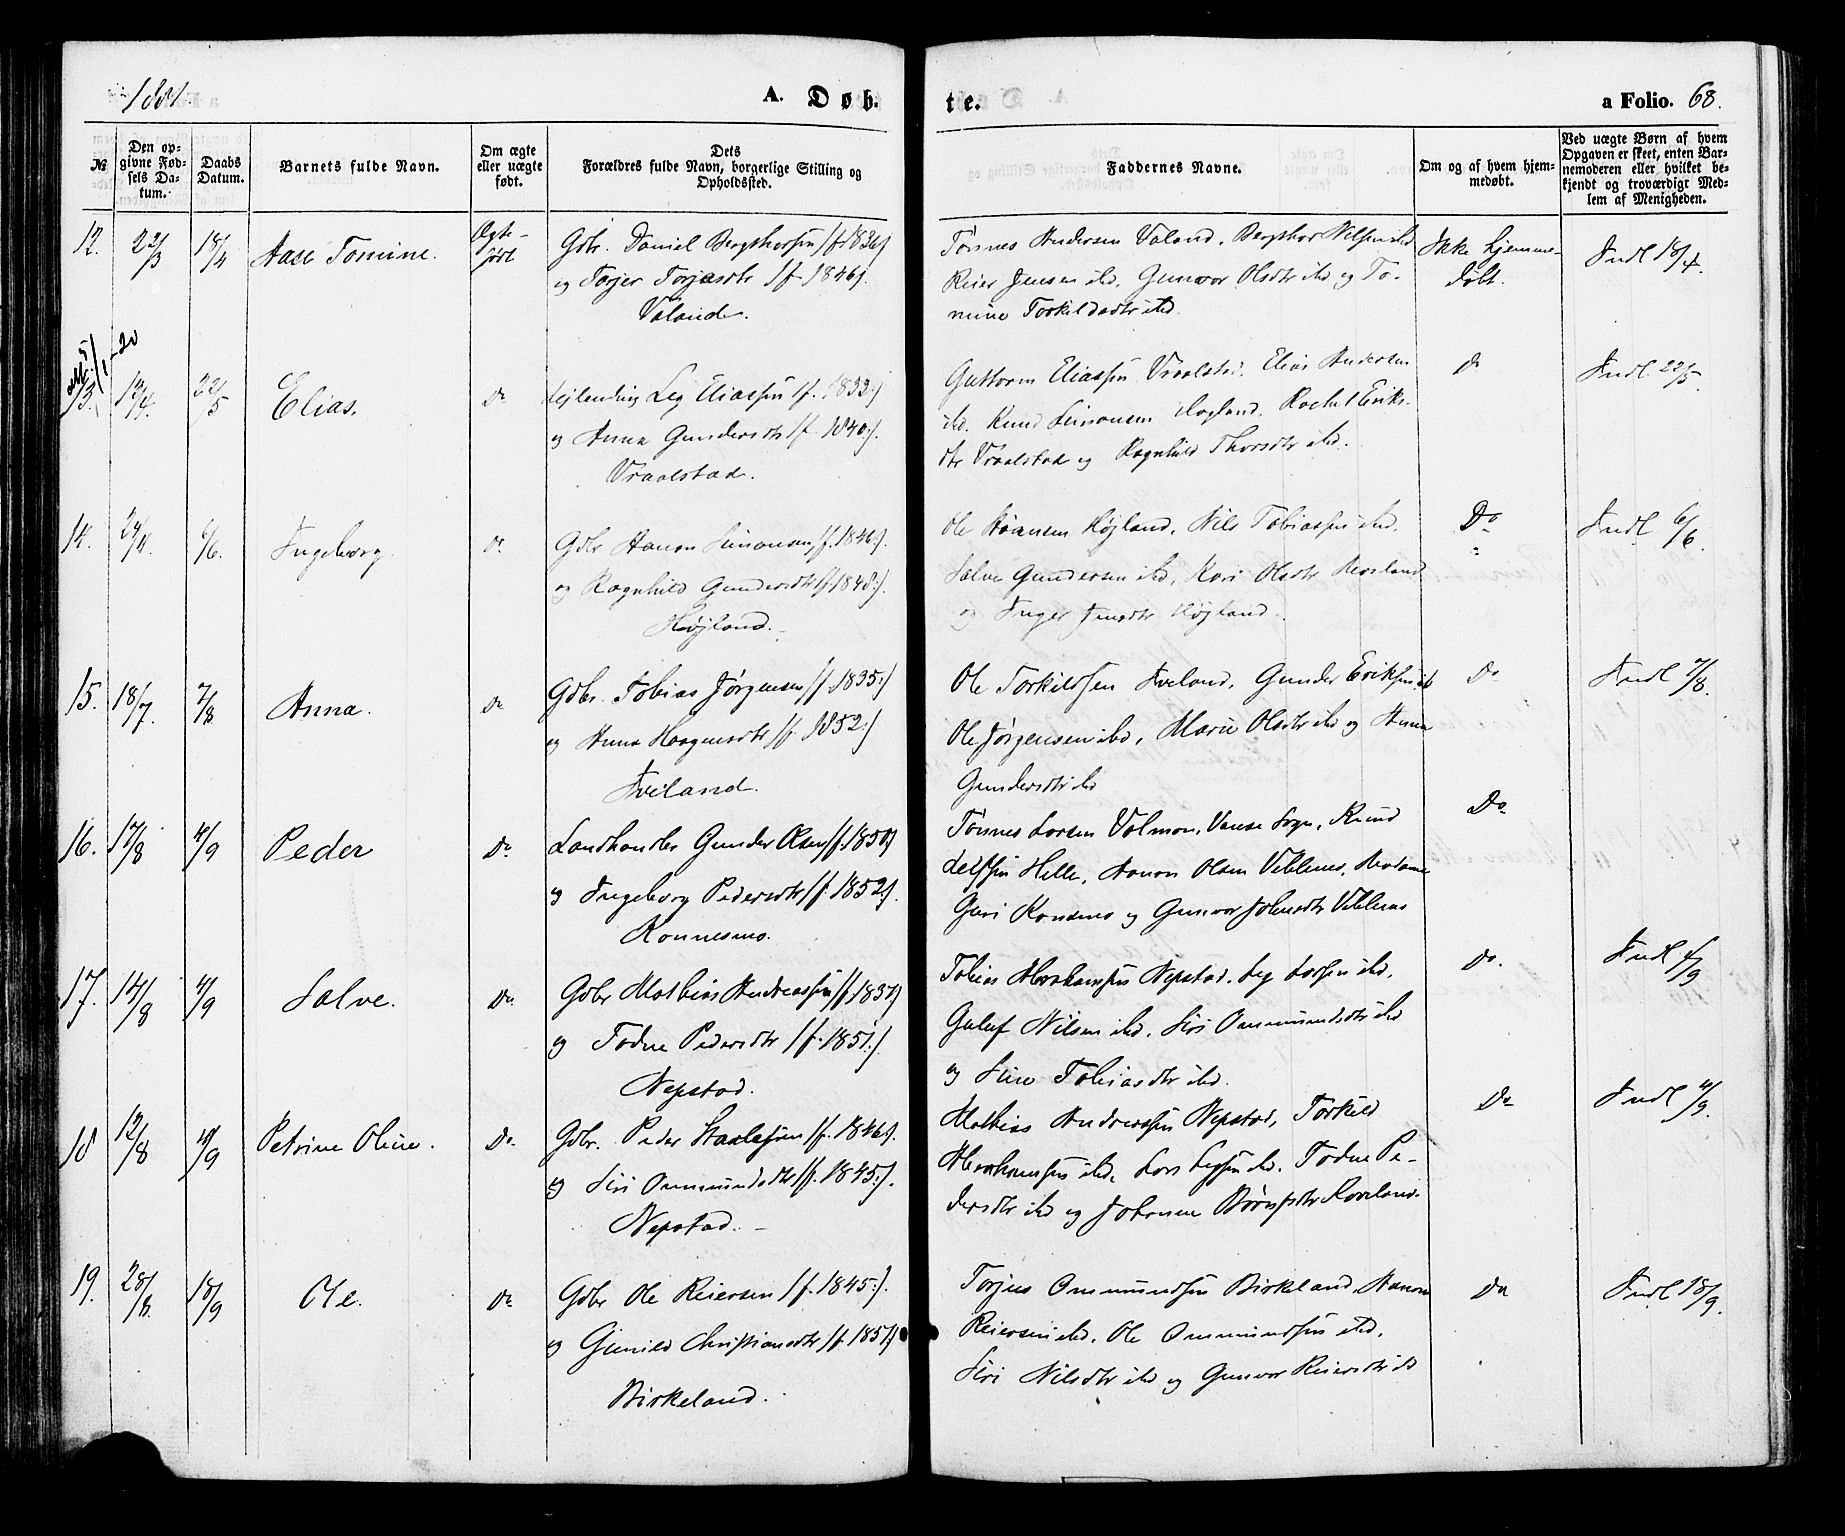 1881. A. Døb- te. a Folio. 68.
№
Den op-
givne Fød-
sels Da-
tum.
Daabs
Datum.
Barnets fulde Navn.
Om ægte
eller uægte
født.
Dets
Forældres fulde Navn, borgerlige Stilling og
Opholdssted.
Faddernes Navne.
Om og af hvem hjem-
medøbt.
Ved uægte Børn af hvem
Opgaven er skeet, enten Bar-
nemoderen eller hvilket be-
kjendt og troværdigt Med-
lem af Menigheden.
12. 22/3 18/4 Aase Tomine. Ægte-
født
Gbr. Daniel Bergthorsen /f. 1826/
og Torjer Torjesdtr /f. 1846/.
Valand.
Tønnes Andersen Valand. Bergthor Nilsen ibd.
Reier Jensen ibd. Gunvor Olsdtr ibd og To-
mine Torkildsdtr ibd.
Ikke hjemme-
døbt.
Indl 18/4.
13. 13/4. 22/5 Elias. Do
Lejlending Leg Eliassen /f. 1832/
og Anna Gundersdtr /f 1840:/.
Vraalstad.
Guttorm Eliassen Vraalstad, Elias Andersen
ibd. Knud Simonsen Høyland, Rachel Eriks-
dtr Vraalstad og Ragnhild Thorsdtr ibd.
Do
Indl 22/5.
14. 24/4. 6/6. Ingeborg. Do
Gdbr Hanon Simonsen /f. 1846:/.
og Ragnhild Gundersdtr /f 1848:/.
Højland.
Ole Hansen Højland, Nils Tobiassen ibd.
Salve Gundersen ibd, Kari Olsdtr
og Inger Jensdtr Højland.
Do
Indl 6/6.
15. 18/7. 7/8 Anna. Do
Gdbr. Tobias Jørgensen /f 1835:/
og Anna Haagensdtr /f. 1852:/
Iveland.
Ole Torkildsen Iveland, Gunder Eriksen ibd
Ole Jørgensen ibd, Marie Olsdtr ibd og Anna
Gundersdtr ibd
Do
Indl 7/8.
16. 17/8 4/9 Peder Do
Landhandler Gunder Olsen /f. 1850/
og Ingeborg Pedersdtr /f. 1852/.
Konnesmo.
Tønnes Larsen Valmon, Vanse Sogn, Knud
Leifsen Helle, Hanon Olsen Viblemo, Madame
Guri Konsmo og Gunvor Johnsdtr Viblemo
Do
Indl 4/9
17. 14/8 4/9 Salve. Do
Gdbr Mathias Andreassen /f. 1837/
og Todne Pedersdtr /f. 1851:/.
Nepstad.
Tobias Abrahamsen Nepstad, Leg Larsen ibd.
Guluf Nilsen ibd, Siri Ommundsdtr ibd
og Sine Tobiasdtr ibd.
Do.
Indl 4/9.
18 12/8 4/9 Petrine Oline. Do
Gdbr. Peder Staalesen /f. 1846/.
og Siri Ommundsdtr /f. 1845:/.
Nepstad.
Mathias Andreassen Nepstad, Torkild
Abrahamsen ibd, Lars Legsen ibd. Todne Pe-
dersdtr ibd og Johanne
Do
19. 28/8. 18/9 Ole. Do
Gdbr Ole Reiersen /f. 1845:/.
og Gunild Christiansdtr /f. 1857/
Birkeland.
Torjus Ommundsen Birkeland, Hanon
Reiersen ibd. Ole Ommundsen ibd,
Siri Nilsdtr ibd og Gunvor Reiersdtr ibd
Do
Indl 18/9.